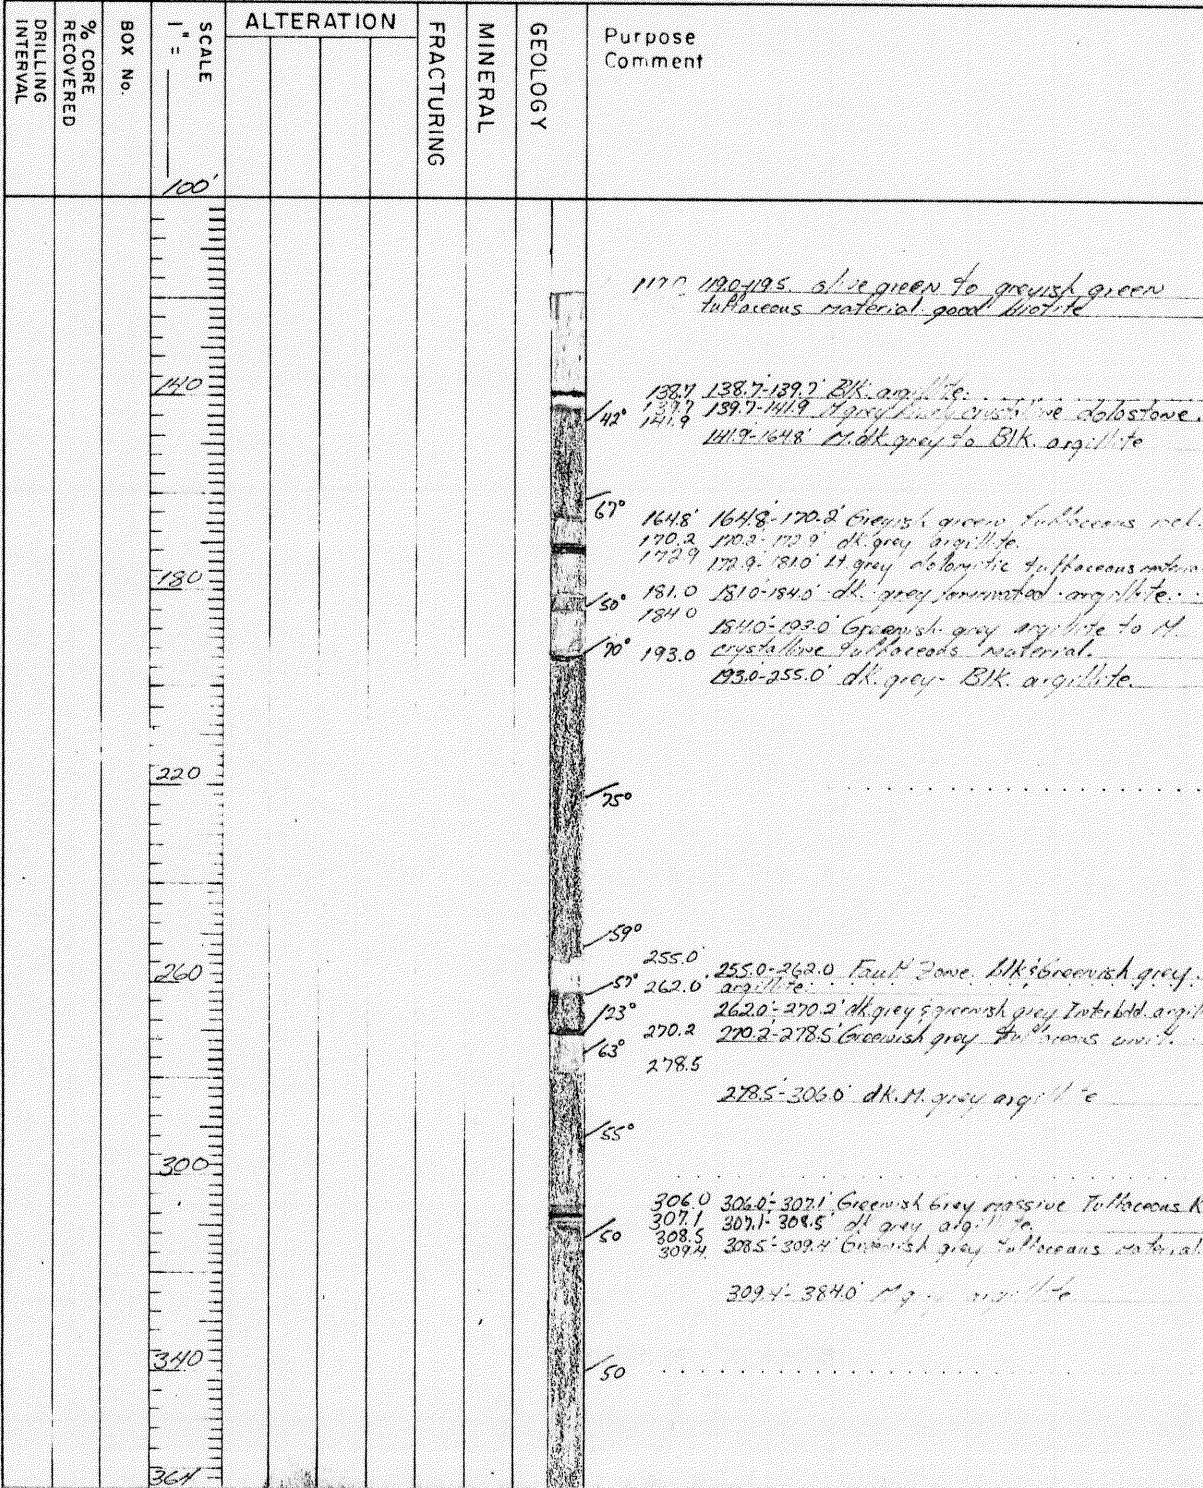 DRILLING INTERVAL
% CORE RECOVERED
BOX No.
SCALE
1" =
100'
ALTERATION
FRACTURING
MINERAL
GEOLOGY
Purpose
Comment
119.0-119.5 olive green to greyish green
tuffaceous material good biotite
140
138.7 138.7-139.7' Blk. argillite.
139.7 139.7-141.9 M grey finely crystalline dolostone.
42° 141.9
141.9-164.8' M. dk. grey to Blk. argillite
67°
164.8' 164.8-170.2' Greyish green tuffaceous
170.2 170.2-172.9' dk. grey argillite.
172.9 172.9-181.0' Lt. grey dolomitic tuffaceous
180
181.0 181.0-184.0' dk. grey laminated argillite.
50° 184.0
184.0-193.0' Greenish grey argillite to M.
70° 193.0 crystalline tuffaceous material.
193.0-255.0' dk. grey - Blk. argillite.
220
75°
59°
255.0'
260
255.0-262.0 Fault Zone. Blk & Greenish grey
57° 262.0' argillite.
23° 262.0'-270.2' dk grey & greenish grey Interbdd.
270.2 270.2-278.5' Greenish grey tuffaceous unit.
63°
278.5
278.5'-306.0' dk. M. grey argillite
55°
300
306.0 306.0'-307.1' Greenish Grey massive Tuffaceous
307.1 307.1-308.5' dk grey argillite.
50 308.5
309.4 308.5'-309.4' Greenish grey tuffaceous material.
309.4'-384.0' argillite
340
50
364